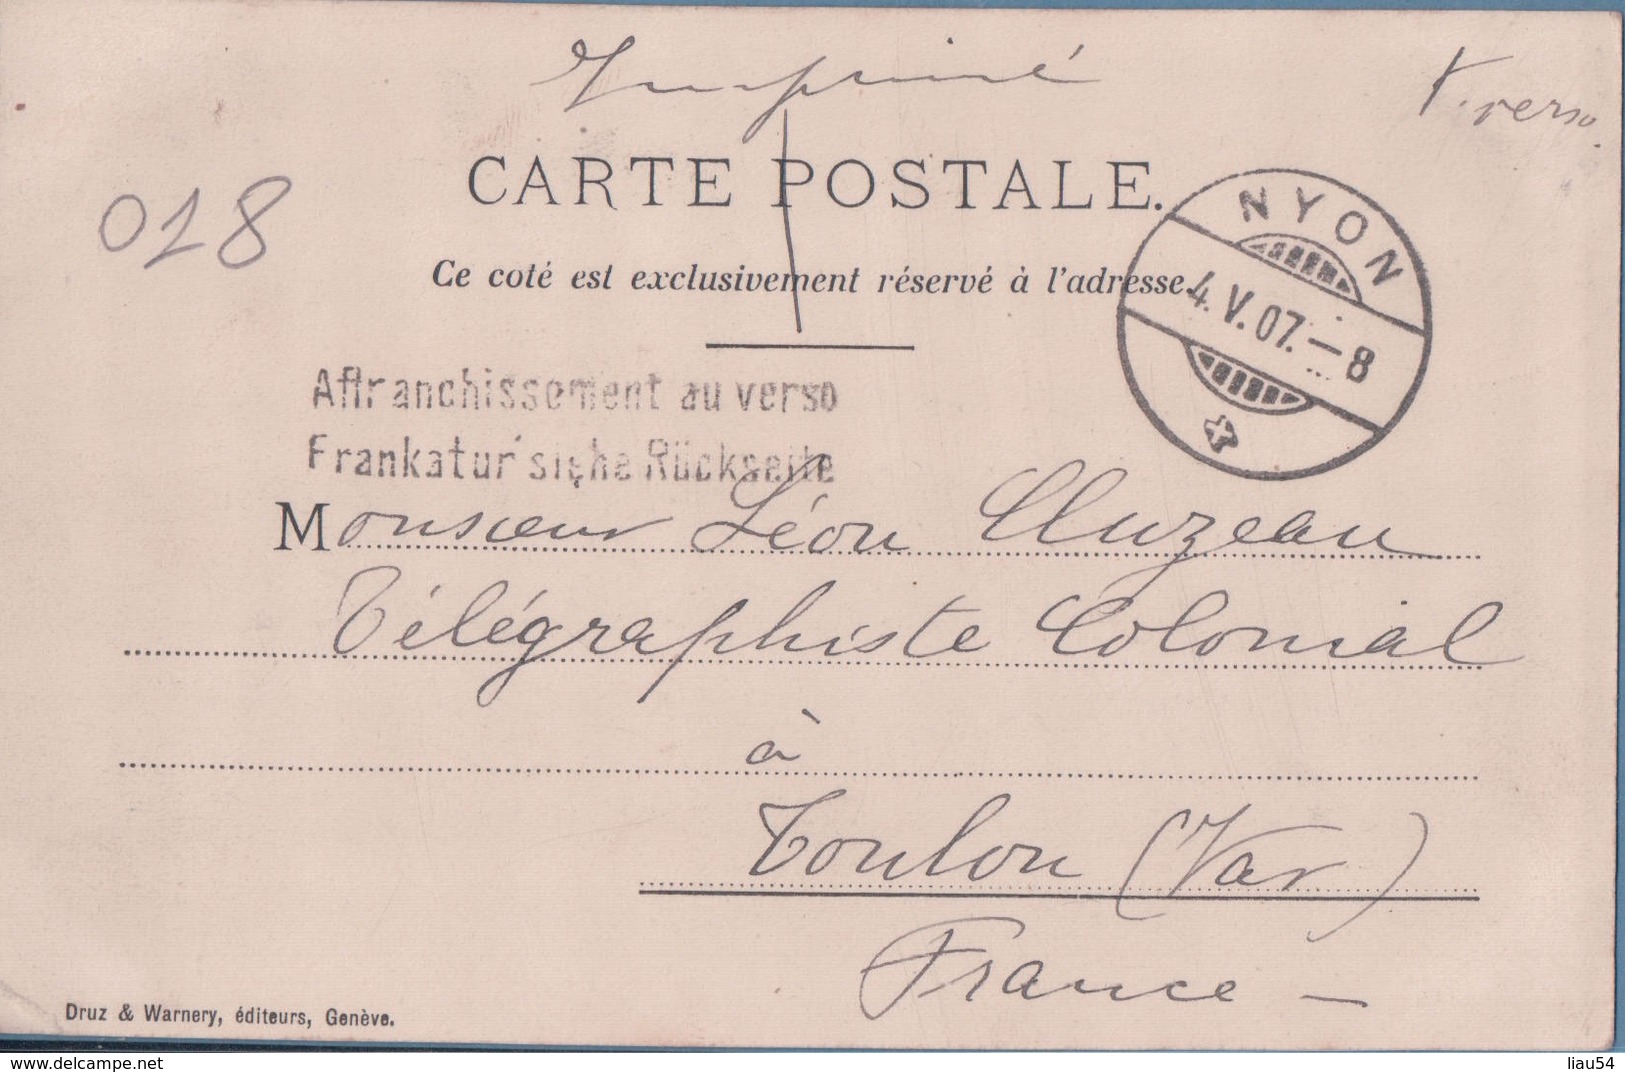 Imprimé
V. verso.
CARTE POSTALE.
018
NYON
4.V.07.–8
Ce coté est exclusivement réservé à l'adresse.
Affranchissement au verso
Frankatur siehe Rückseite
Monsieur Léon Cluzeau
Télégraphiste Colonial
à
Toulon (Var)
France –
Druz & Warnery, éditeurs, Genève.
www.delcampe.net
liau54